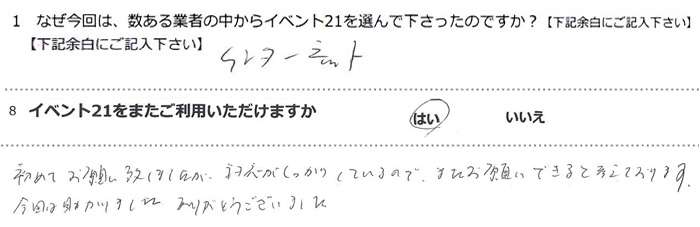 1 なぜ今回は、数ある業者の中からイベント21を選んで下さったのですか？【下記余白にご記入下さい】
【下記余白にご記入下さい】
インターネット
8 イベント21をまたご利用いただけますか はい いいえ
初めてお願い致しましたが、対応がしっかりしているので、またお願いできると考えております。
今回は助かりました ありがとうございました